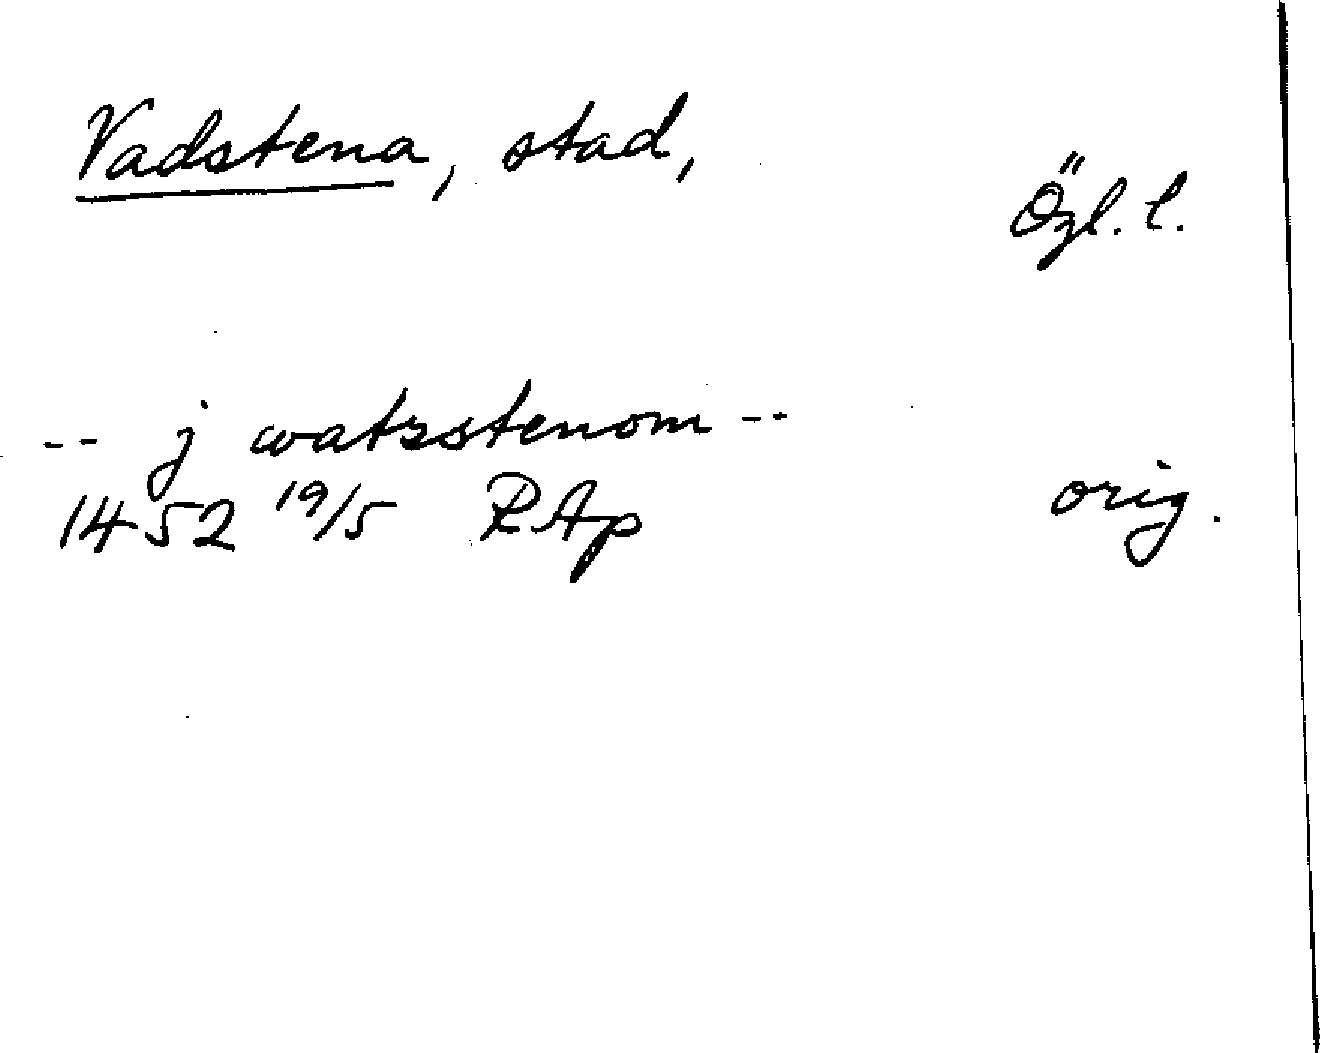 Vadstena, stad,
Ögl. l.
-- j watzstenom --
1452 19/5 RAp orig.